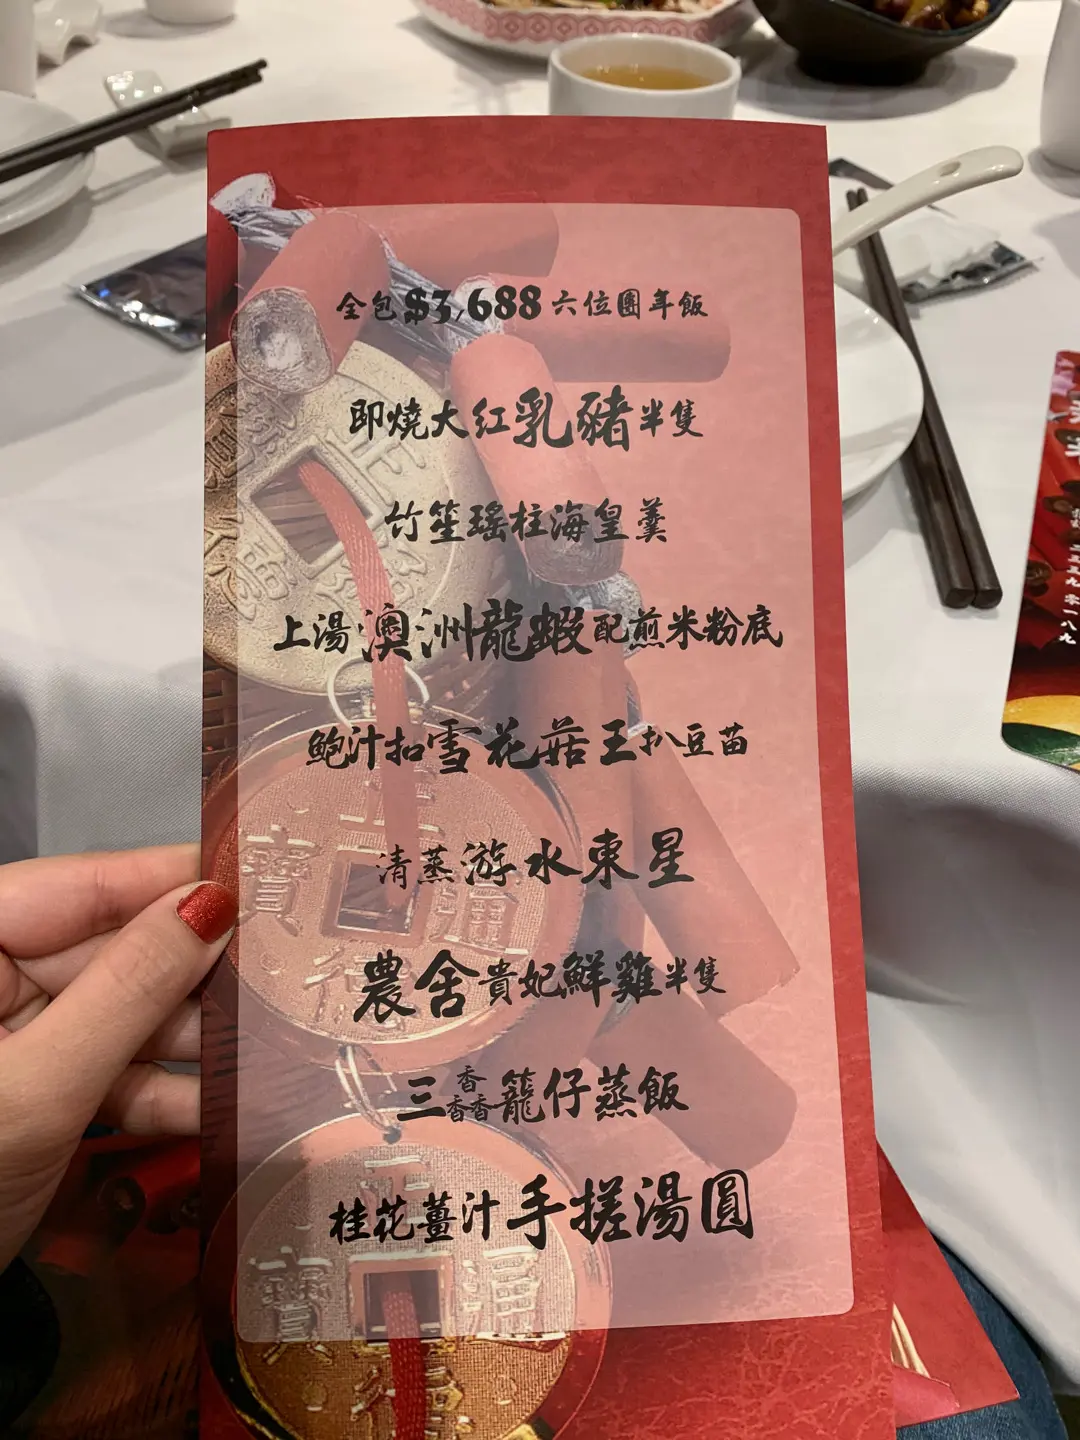 全包$3,688六位團年飯
即燒大红乳豬半隻
竹笙瑤柱海皇羹
上湯澳洲龍蝦配煎米粉底
鮑汁扣雪花菇王扒豆苗
清蒸游水東星
農舍貴妃鮮雞半隻
三香香香籠仔蒸飯
桂花薑汁手搓湯圓